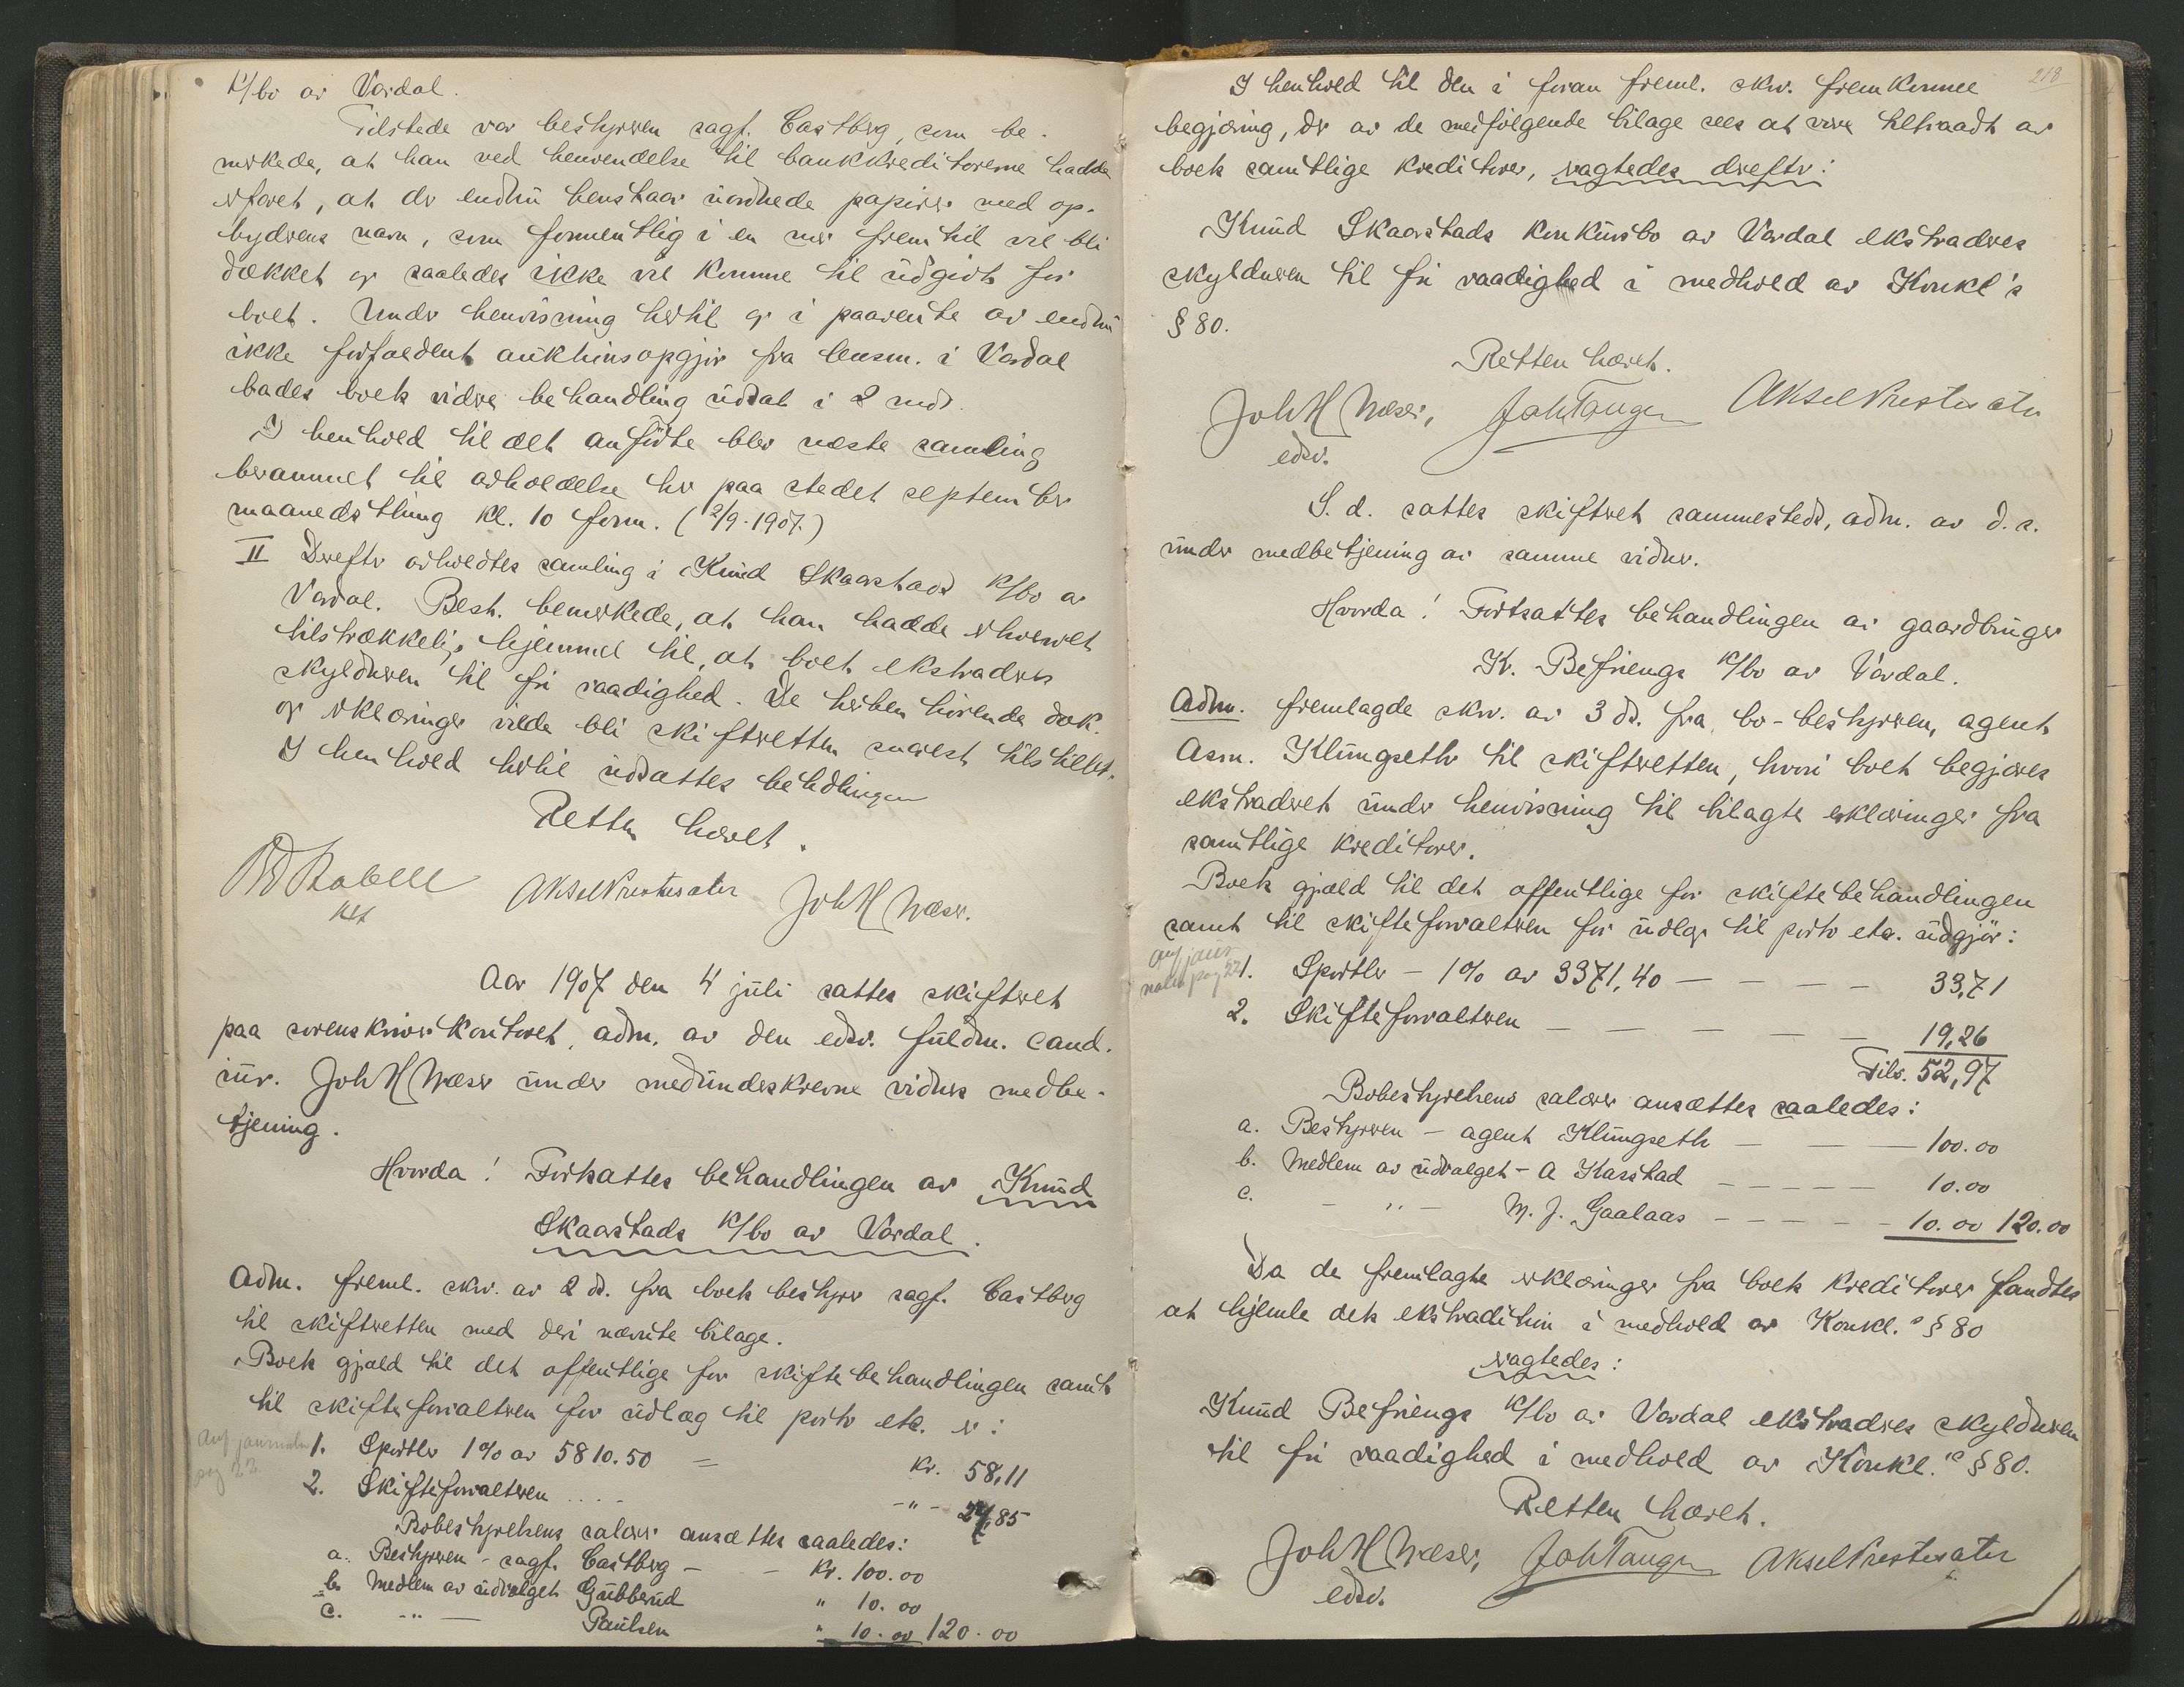 K/bo av Vardal.
Tilstede var bestyreren sagf. Castberg, som be-
merkede, at han ved henvendelse til bankkreditorerne hadde
erfaret, at der endnu henstaar uordnede papirer med op-
byderens navn, som formentlig i en nær fremtid vil bli
dækket og saaledes ikke vil komme til udgivt for
boet. Under henvisning hertil og i paavente av endnu
ikke forfaldent auktionsopgjør fra lensm. i Vardal
bades boets videre behandling udsat i 2 mdr.
I henhold til det anførte blev næste samling
berammet til avholdelse her paa stedet september
maanedsthing kl. 10 form. (2/9-1907.)
II Derefter avholdtes samling i Knud Skaarstads K/bo av
Vardal. Best. bemerkede, at han hadde erhvervet
tilstrækkelig hjemmel til, at boet ekstraderes
skyldneren til fri raadighed. De herhen hørende dok.
og erklæringer vilde bli skifteretten snarest tilstillet.
I henhold hertil udsattes behdlingen
Retten hævet.
Aksel Prestesæter Joh H Wæser.
Aar 1907 den 4 juli sattes skifteret
paa sorenskriverkontoret, adm. av den edsv. fuldm. cand.
jur. Joh H Wæser under medundeskrevne vidners medbe-
tjening.
Hvorda! Fortsattes behandlingen av Knud
Skaarstads K/bo av Vardal.
Adm. freml. skr. av 2 ds. fra boets bestyrer sagf. Castberg
til skifteretten med deri nævnte bilage.
Boets gjæld til det offentlige for skiftebehandlingen samt
til skifteforvalteren for udlæg til porto etc. er:
Anf journalen
pag 22
1. Sportler 1% av 5810.50 = Kr. 58,11
2. Skifteforvalteren .... -"- 27,85
Bobestyrelsens salærer ansættes saaledes:
a. Bestyreren - sagf. Castberg - - Kr. 100.00
b. Medlem av udvalget Gubberud " 10.00
c. -"- Paulsen " 10.00 120.00
218
I henhold til den i foran freml. skr. fremkomne
begjæring, der av de medfølgende bilage sees at være tiltraadt av
boets samtlige kreditorer, vagtedes derefter:
Knud Skaarstads konkursbo av Vardal ekstraderes
skyldneren til fri raadighed i medhold av Konkl's
§ 80.
Retten hævet.
Joh H Wæser, Joh Tangen Aksel Prestesæter
edsv.
S. d. sattes skifteret sammesteds, adm. av d. s.
under medbetjening av samme vidner.
Hvorda! Fortsattes behandlingen av gaardbruger
K. Befrings K/bo av Vardal.
Adm. fremlagde skr. av 3 ds. fra bo-bestyreren, agent
Asm. Klungseth til skifteretten, hvori boet begjæres
ekstraderet under henvisning til bilagte erklæringer fra
samtlige kreditorer.
Boets gjæld til det offentlige for skiftebehandlingen
samt til skifteforvalteren for udlæg til porto etc. udgjør:
Anf jour
nalen pag 22
1. Sportler - 1% av 3371,40 - - - - - 33,71
2. Skifteforvalteren - - - - - 19,26
Tils. 52,97
Bobestyrelsens salærer ansættes saaledes:
a. Bestyreren - agent Klungseth - - - 100.00
b. Medlem av udvalget - A Kasstad - - - - - 10.00
c. - " - M. J. Gaalaas - - - - - 10.00 120.00
Da de fremlagte erklæringer fra boets kreditorer fandtes
at hjemle dets ekstradition i medhold av Konkl.s § 80
vagtedes:
Knud Befrings K/bo av Vardal ekstraderes skyldneren
til fri raadighed i medhold av Konkl.s § 80.
Retten hævet.
Joh H Wæser, Joh Tangen Aksel Prestesæter
edsv.